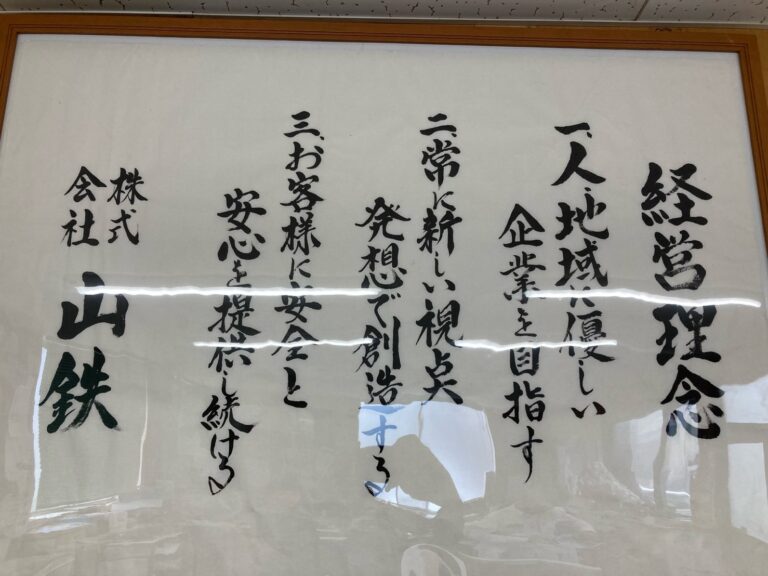 経営理念
一、人・地域に優しい
企業を目指す
二、常に新しい視点
発想で創造する
三、お客様に安全と
安心を提供し続ける
株式
会社
山鉄